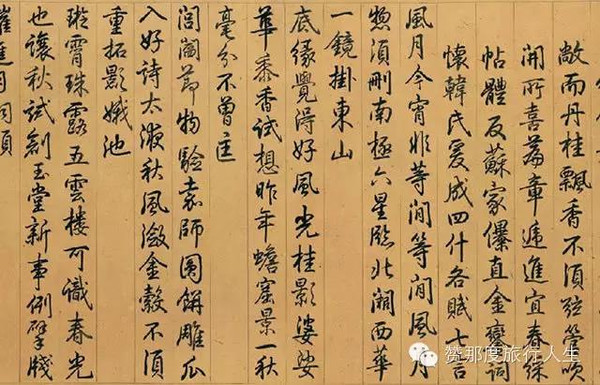 敞而丹桂飄香不須弦管喚
開所喜篇章遞進宜春綵
帖體反蘇家儤直金鑾詞
懷韓氏爰成四什各賦七言
風月今宵非等閒等閒風月
怱須刪南極六星臨北湖西華
一鏡掛東山
底緣覺得好風光桂影婆娑
華黍香試想昨年蟾窟景一秋
毫分不曾
閶闔節物驗袁師圓餅雕瓜
入好詩太液秋風漾金縠不須
重拓影娥池
璇霄珠露五雲樓可識春光
也讓秋試創玉堂新事例擘牋
贊那度旅行人生